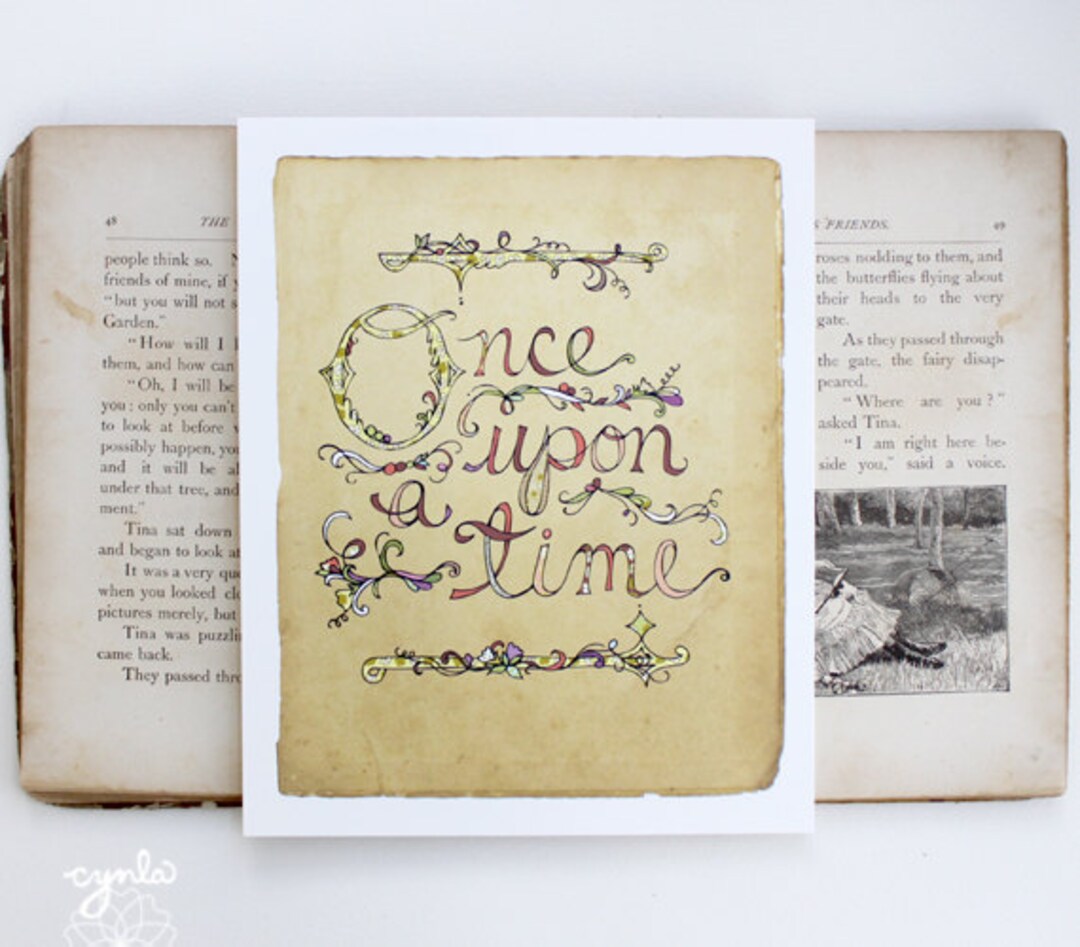 48
THE
people think so.
friends of mine, if
"but you will not
Garden."
"How will I
them, and how can
"Oh, I will be
you: only you can't
to look at before
possibly happen,
and it will be
under that tree, and
ment."
Tina sat down
and began to look at
It was a very
when you looked
pictures merely, but
Tina was
came back.
They passed
Once
upon
a
time
FRIENDS.
49
roses nodding to them, and
the butterflies flying about
their heads to the very
gate.
As they passed through
the gate, the fairy disap-
peared.
"Where are you?"
asked Tina.
"I am right here be-
side you," said a voice.
cynla